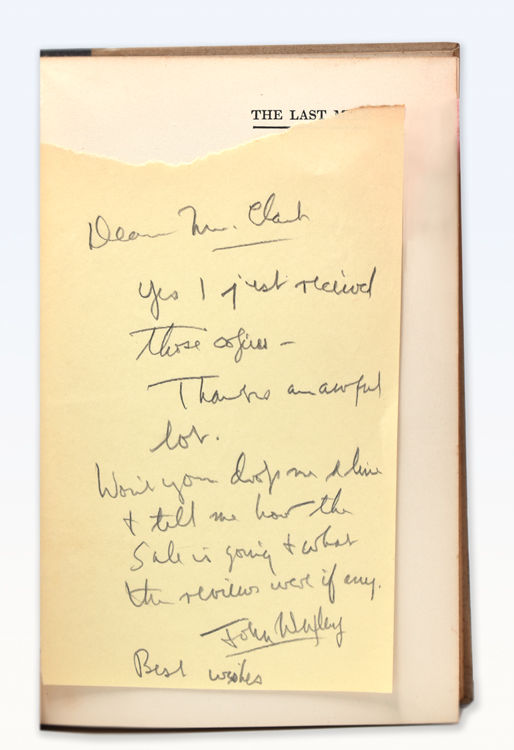 THE LAST M
Dear Mr. Clark
Yes I just received
those copies –
Thanks an awful
lot.
Won't you drop me a line
& tell me how the
Sale is going & what
the reviews were if any.
John Wexley
Best wishes